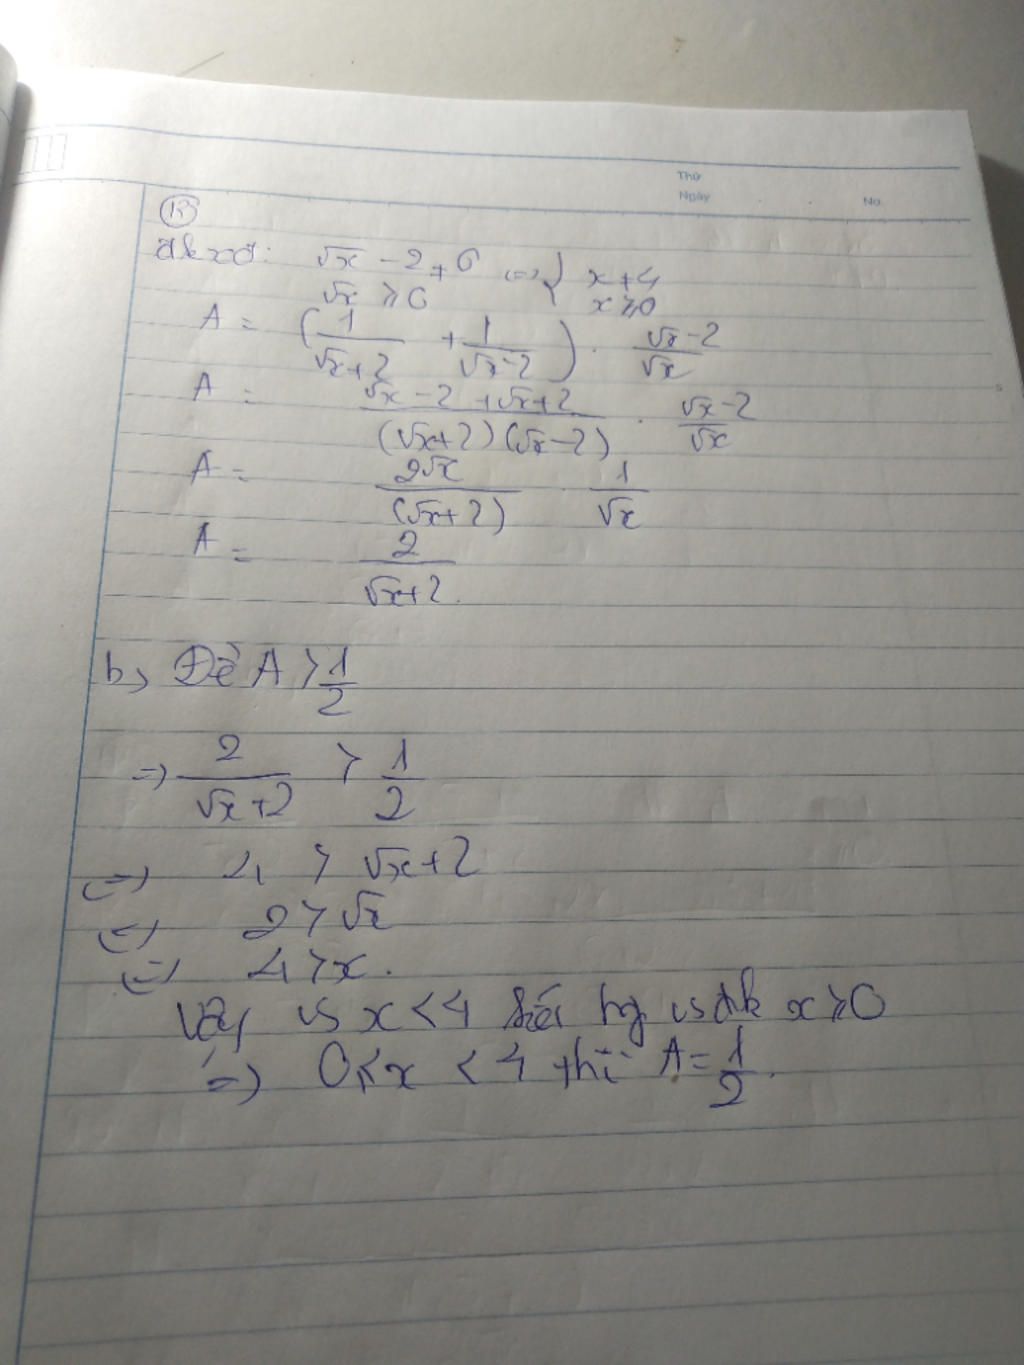 Thứ
Ngày
No.
13
đkxđ: √x - 2 ≠ 0 <=> { x ≠ 4
√x ≥ 0 x ≥ 0
A = (1/(√x+2) + 1/(√x-2)) . (√x-2)/√x
A = (√x - 2 + √x + 2)/((√x+2)(√x-2)) . (√x-2)/√x
A = 2√x/(√x+2) . 1/√x
A = 2/(√x+2).
b, Để A > 1/2
=> 2/(√x+2) > 1/2
<=> 4 > √x+2
<=> 2 > √x
<=> 4 > x.
Vậy vs x < 4 kết hợp vs đk x ≥ 0
=> 0 ≤ x < 4 thì A = 1/2.